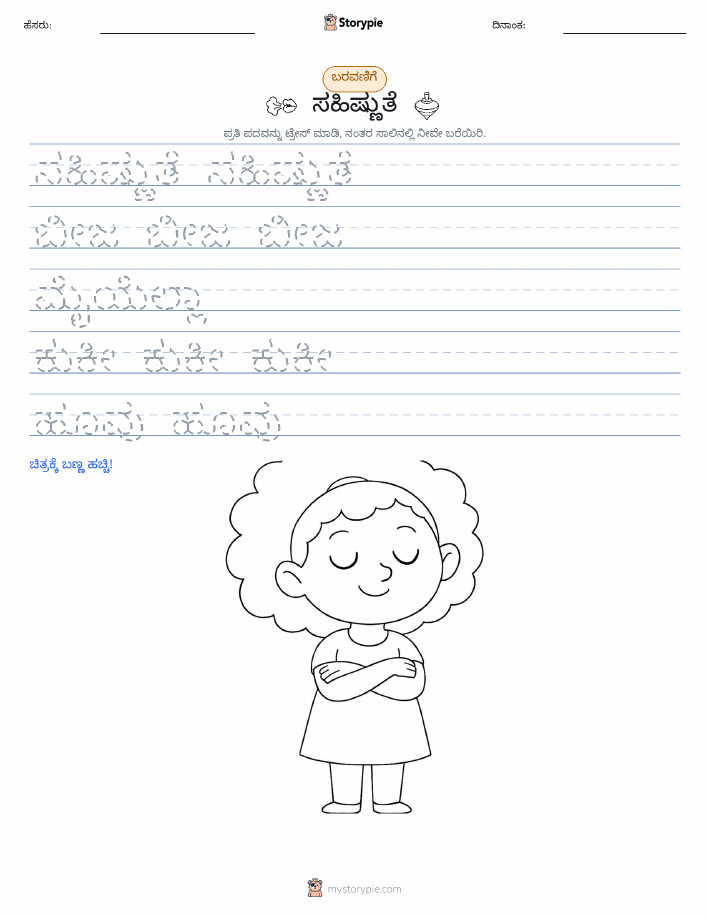 ಹೆಸರು: Storypie ದಿನಾಂಕ:
ಬರವಣಿಗೆ
ಸಹಿಷ್ಣುತೆ
ಪ್ರತಿ ಪದವನ್ನು ಟ್ರೇಸ್ ಮಾಡಿ, ನಂತರ ಸಾಲಿನಲ್ಲಿ ನೀವೇ ಬರೆಯಿರಿ.
ಸಹಿಷ್ಣುತೆ ಸಹಿಷ್ಣುತೆ
ಬೀಜ ಬೀಜ ಬೀಜ
ಕುರ್ಚಿ ಕುರ್ಚಿ ಕುರ್ಚಿ
ಹೂವು ಹೂವು
ಚಿತ್ರಕ್ಕೆ ಬಣ್ಣ ಹಚ್ಚಿ!
mystorypie.com